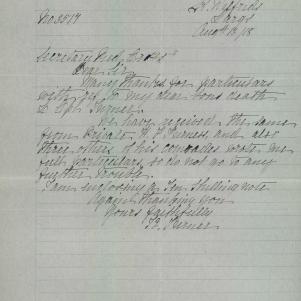 No 3517
Largs
Aug 18/18
Secretary Red Cross
Dear Sir
Many thanks for particulars
with ref. to my dear sons death
L Cpl Turner.
We have received the same
from Private and also
three others of his comrades wrote me
full particulars so do not go to any
further trouble.
I am enclosing a Ten Shilling note
Again thanking you
Yours faithfully
Turner